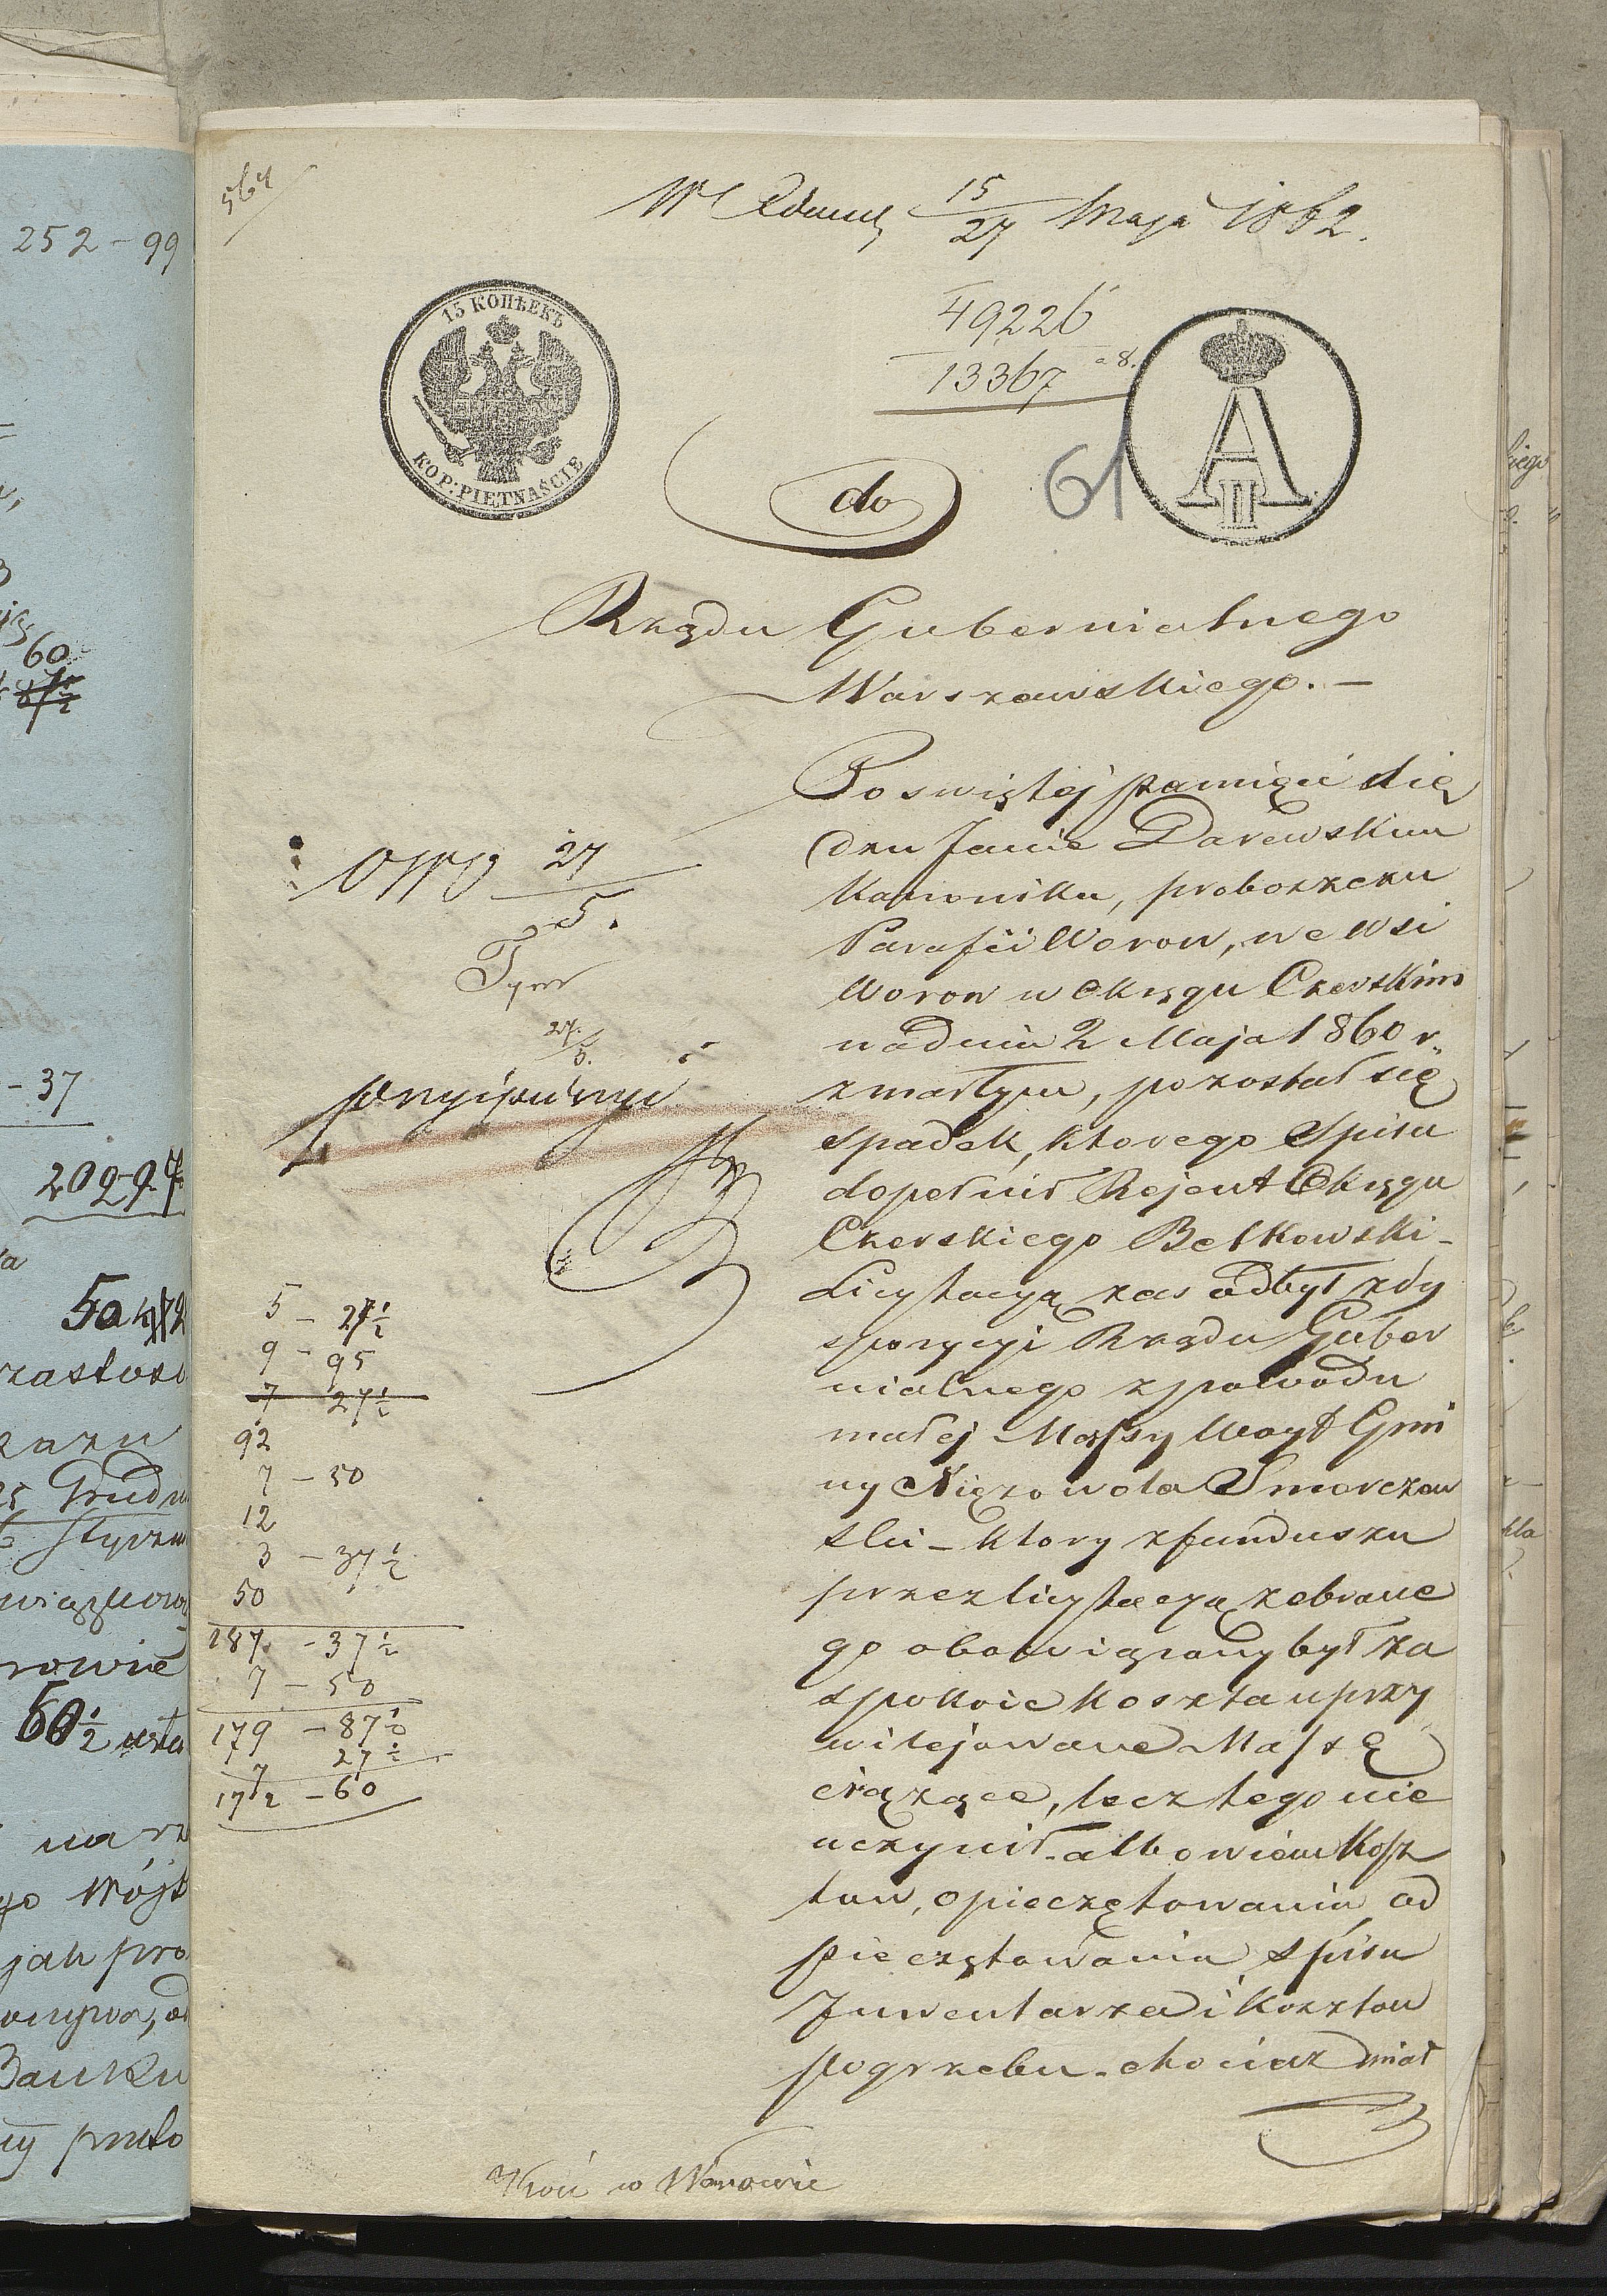 564
15/27 Maja 1862.
49226
13367 - 8.
15 КОПѢЕКЪ
KOP: PIĘTNAŚCIE
A II
61
do
Rządu Gubernialnego
Warszawskiego. —
Po swiętej pamięci Xię
dzu Janie Darewskim
Kanoniku, proboszczu
Parafii Worow, we wsi
Worow w Okręgu Czerskim
na dniu 2 Maja 1860 r.
zmarłym, pozostał się
spadek, ktorego Spisu
dopełnił Rejent Okręgu
Czerskiego Betkowski -
Licytacyą zas odbył z dy
spozycyi Rządu Guber
nialnego z powodu
małej Massy Woyt Gmi
ny Smorczew
ski - ktory z funduszu
przez licytacyą zebrane
go obowiązany był za
spokoic koszta uprzy
wilejowane Massę
ciążące, lecz tego nie
uczynił - albowiem Kosz
tow, opieczętowania, od
pieczętowania spisu
Inwentarza i Kosztow
pogrzebu - chociaz miał
27
5.
27/5.
5 - 27 1/2
9 - 95
7 27 1/2
92
7 - 50
12
3 - 37 1/2
50
187 - 37 1/2
7 - 50
179 - 87 1/2
7 27 1/2
172 - 60
w Worowie
252 - 99
60
- 37
209-97
50
zastoso
25 Grudn
6 Styczn
rowie
60 1/2
na
go Wójt
jak pro
Banku